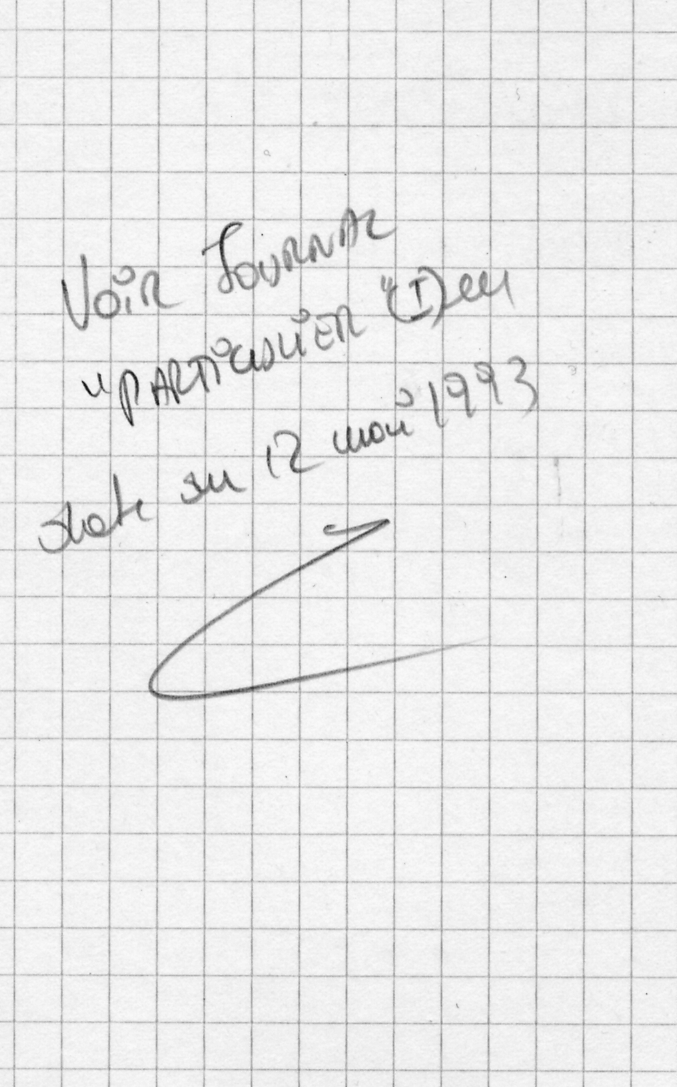 VOIR JOURNAL
"PARTICULIER" (I) en
date du 12 mai 1993